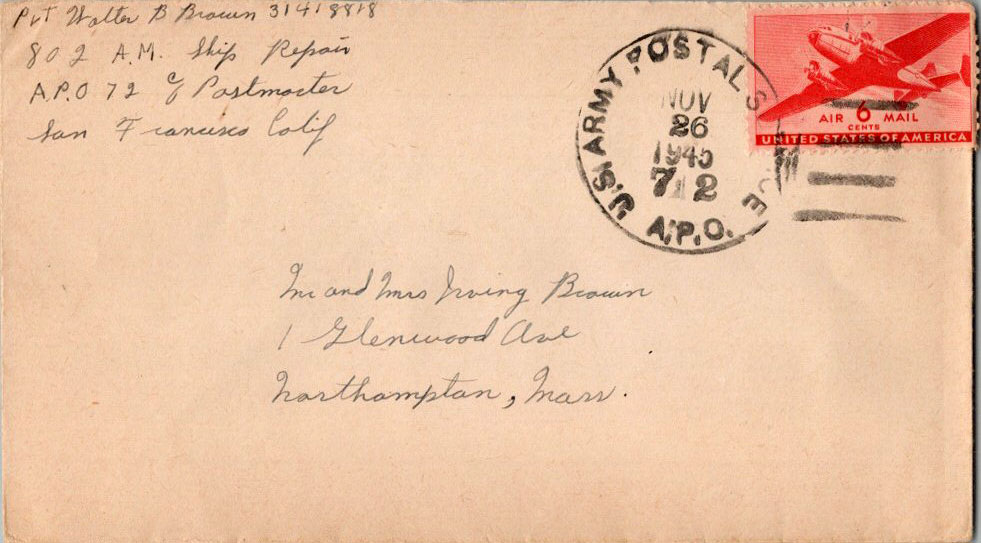 Pvt Walter B Brown 31418818
802 A.M. Ship Repair
A.P.O 72 c/o Postmaster
San Francisco Calif
U.S. ARMY POSTAL S   CE
NOV
26
1945
7 2
A.P.O.
AIR 6 MAIL
CENTS
UNITED STATES OF AMERICA
Mr and Mrs Irving Brown
1 Glenwood Ave
Northampton, Mass.